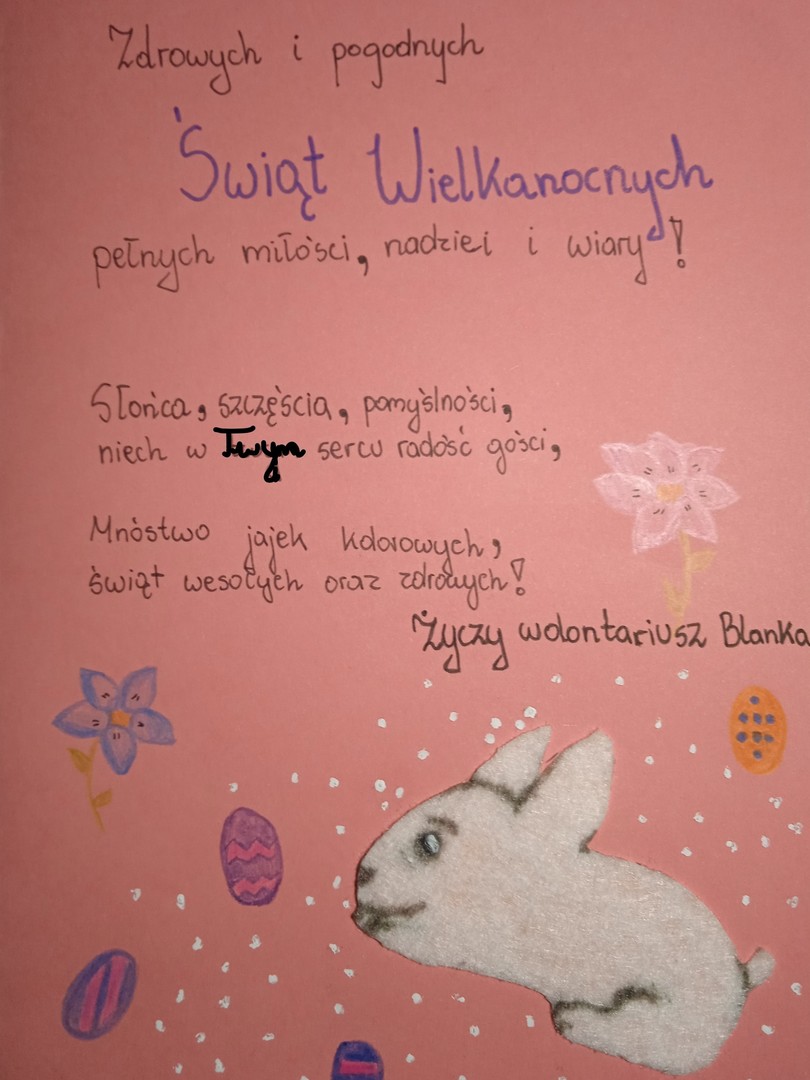 Zdrowych i pogodnych
Świąt Wielkanocnych
pełnych miłości, nadziei i wiary!
Słońca, szczęścia, pomyślności,
niech w Twym sercu radość gości,
Mnóstwo jajek kolorowych,
świąt wesołych oraz zdrowych!
Życzy wolontariusz Blanka